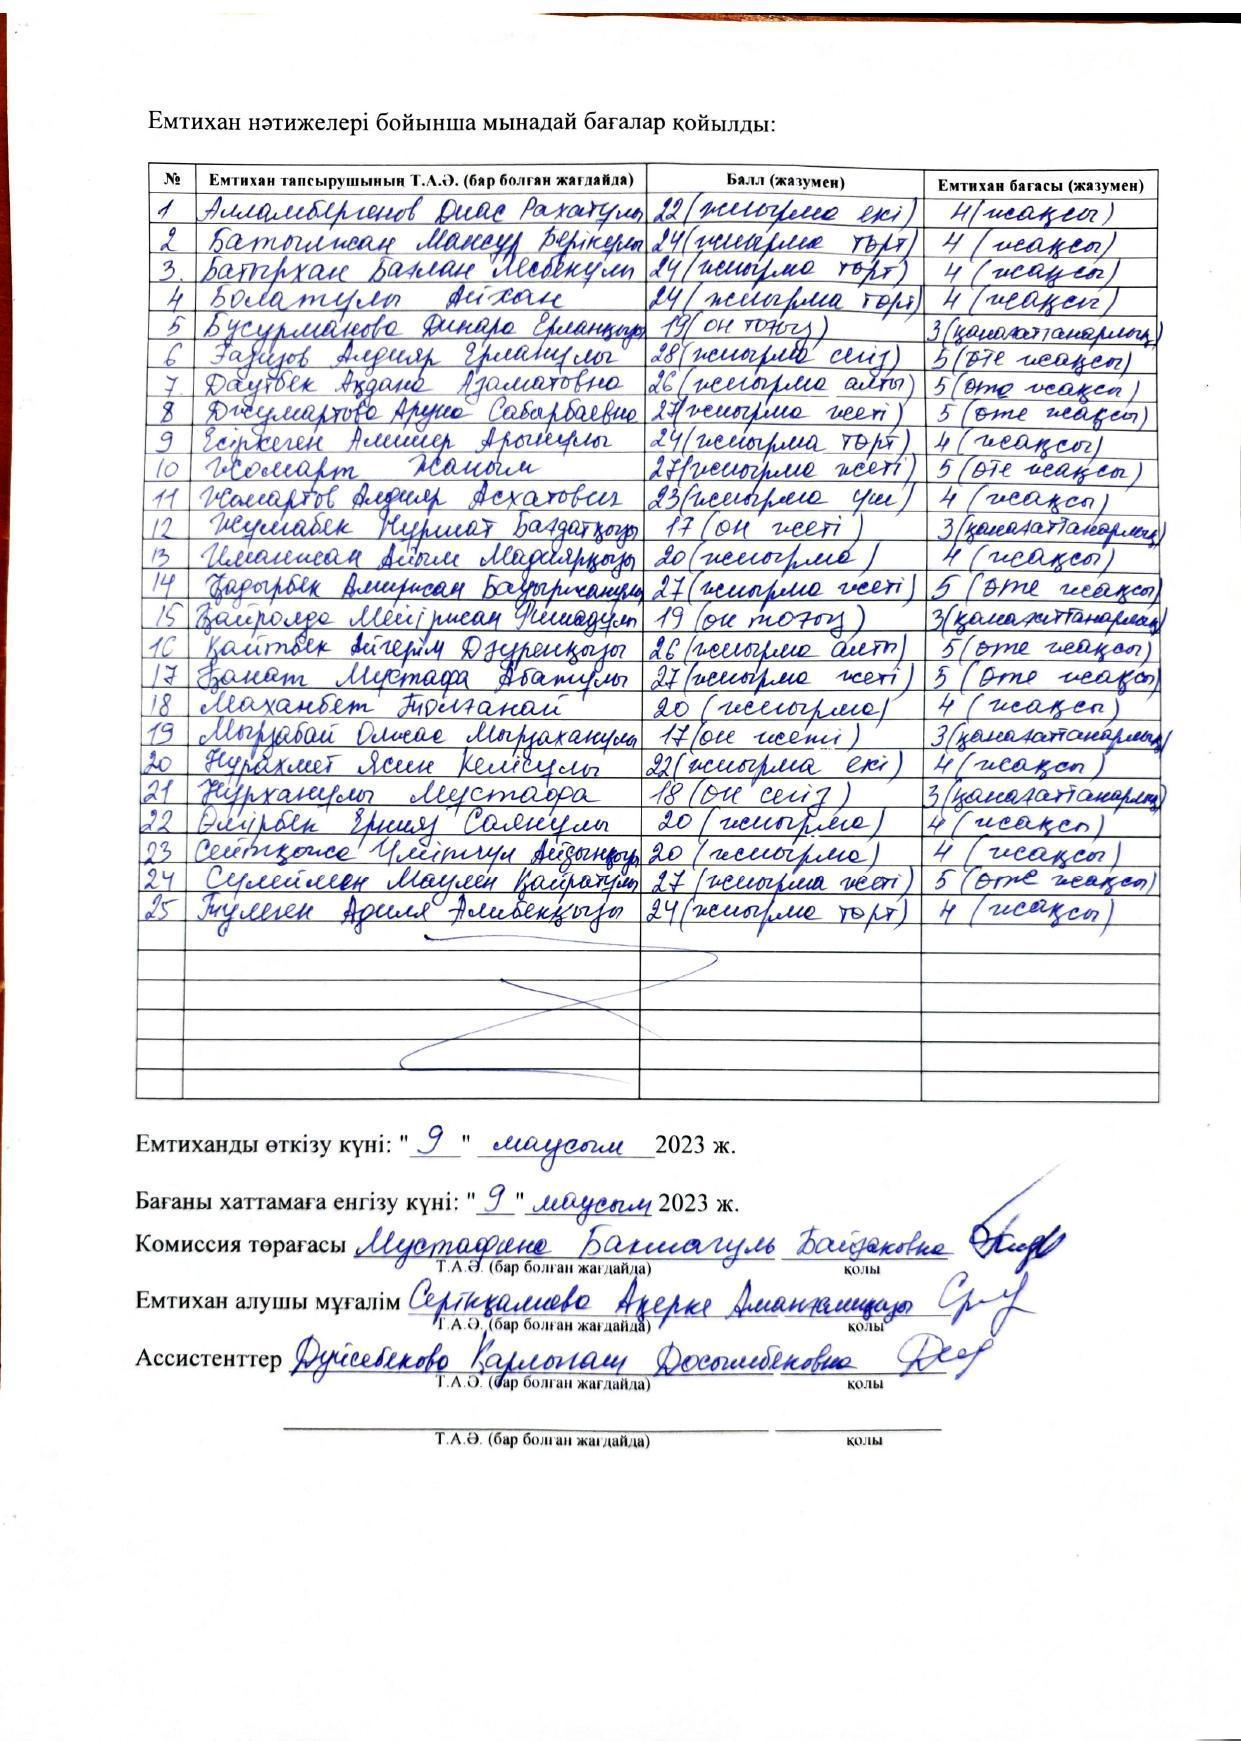 Емтихан нәтижелері бойынша мынадай бағалар қойылды:
№ Емтихан тапсырушының Т.А.Ә. (бар болған жағдайда) Балл (жазумен) Емтихан бағасы (жазумен)
1 Алламбергенов Диас Рахатұлы 22 (жиырма екі) 4 (жақсы)
2 Батылжан Мансур Берікұлы 24 (жиырма төрт) 4 (жақсы)
3. Батырхан Бағлан Лесбекұлы 24 (жиырма төрт) 4 (жақсы)
4 Болатұлы Айхан 24 (жиырма төрт) 4 (жақсы)
5 Бусурманова Динара Ерланқызы 19 (он тоғыз) 3 (қанағаттанарлық)
6 Ғазизов Алдияр Ерланұлы 28 (жиырма сегіз) 5 (өте жақсы)
7. Даутбек Ақдана Азаматовна 26 (жиырма алты) 5 (өте жақсы)
8 Джумартова Аруна Сабырбаевна 27 (жиырма жеті) 5 (өте жақсы)
9 Есіркеген Алишер Арынұлы 24 (жиырма төрт) 4 (жақсы)
10 Жомарт Жаным 27 (жиырма жеті) 5 (өте жақсы)
11 Жомартов Алдияр Асхатович 23 (жиырма үш) 4 (жақсы)
12 Жұмабек Нұрмат Бағдатқызы 17 (он жеті) 3 (қанағаттанарлық)
13 Иманжан Айым Мадиярқызы 20 (жиырма) 4 (жақсы)
14 Қадырбек Амиржан Бауыржанұлы 27 (жиырма жеті) 5 (өте жақсы)
15 Қайролда Мейіржан 19 (он тоғыз) 3 (қанағаттанарлық)
16 Қайтбек Айгерім Дәуренқызы 26 (жиырма алты) 5 (өте жақсы)
17 Қанат Мустафа Абатұлы 27 (жиырма жеті) 5 (өте жақсы)
18 Маханбет Толғанай 20 (жиырма) 4 (жақсы)
19 Мырзабай Олжас Мырзаханұлы 17 (он жеті) 3 (қанағаттанарлық)
20 Нұрахмет Ясин Келісұлы 22 (жиырма екі) 4 (жақсы)
21 Нұрханұлы Мустафа 18 (он сегіз) 3 (қанағаттанарлық)
22 Өмірбек Ернияз Саянұлы 20 (жиырма) 4 (жақсы)
23 Сейтқожа Үмітгүл Айдынқызы 20 (жиырма) 4 (жақсы)
24 Сулеймен Маулен Қайратұлы 27 (жиырма жеті) 5 (өте жақсы)
25 Төлеген Адиля Алибекқызы 24 (жиырма төрт) 4 (жақсы)
Емтиханды өткізу күні: "9" маусым 2023 ж.
Бағаны хаттамаға енгізу күні: "9" маусым 2023 ж.
Комиссия төрағасы Мустафина Бакшагуль Байзаковна
Т.А.Ә. (бар болған жағдайда) қолы
Емтихан алушы мұғалім Серікқалиева Ақерке Аманғалиқызы
Т.А.Ә. (бар болған жағдайда) қолы
Ассистенттер Дүйсебекова Қарлығаш Досымбековна
Т.А.Ә. (бар болған жағдайда) қолы
Т.А.Ә. (бар болған жағдайда) қолы